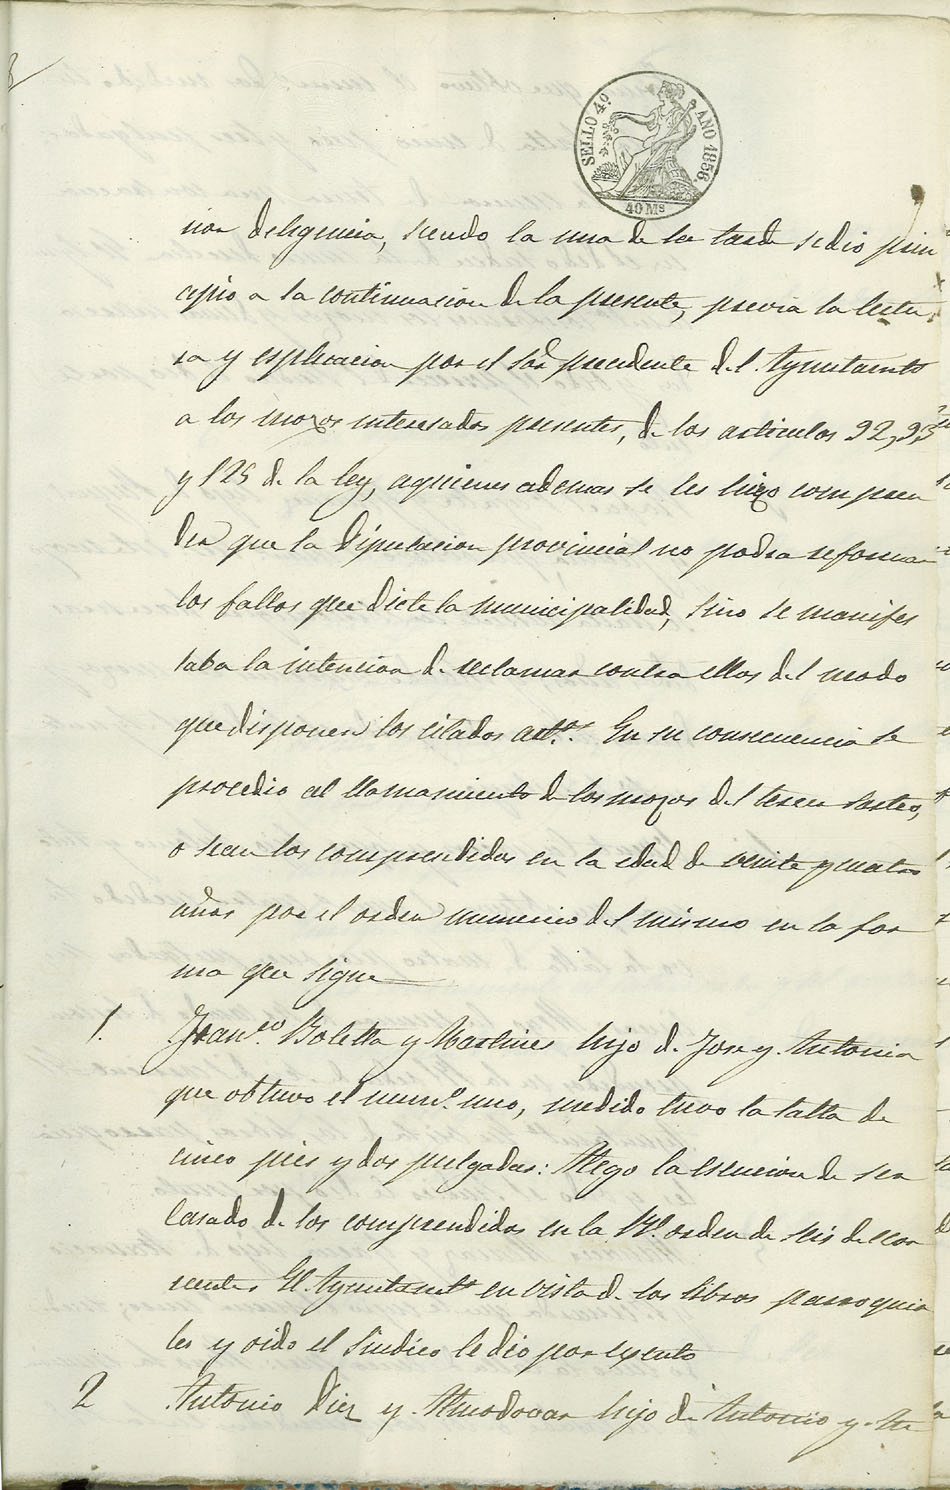 SELLO 4º AÑO 1856.
40 Ms
rior diligencia, siendo la una de la tarde se dio prin
cipio a la continuacion de la presente, previa la lectu
ra y esplicacion por el Sor precidente del Ayuntamto
a los mozos interesados presentes, de los articulos 92, 93
y 125 de la ley, aquienes ademas se les hizo compren
der que la Diputacion provincial no podra reformar
los fallos que dicte la municipalidad, sino se manifes
taba la intencion de reclamar contra ellos del modo
que disponen los citados artos. En su consecuencia se
procedio al llamamiento de los mozos del tercer sorteo,
o sean los comprendidos en la edad de veinte y cuatro
años por el orden numerico del mismo en la for
ma que sigue
1. Franco. Boletta y Martines hijo de Jose y Antonia
que obtuvo el numo. uno, medido tuvo la talla de
cinco pies y dos pulgadas: Alego la esencion de ser
Casado de los comprendidos en la Rl. orden de seis del cor
riente. El Ayuntamto en vista de los libros parroquia
les y oido el Sindico le dio por esento
2 Antonio Diez y Almodovar hijo de Antonio y